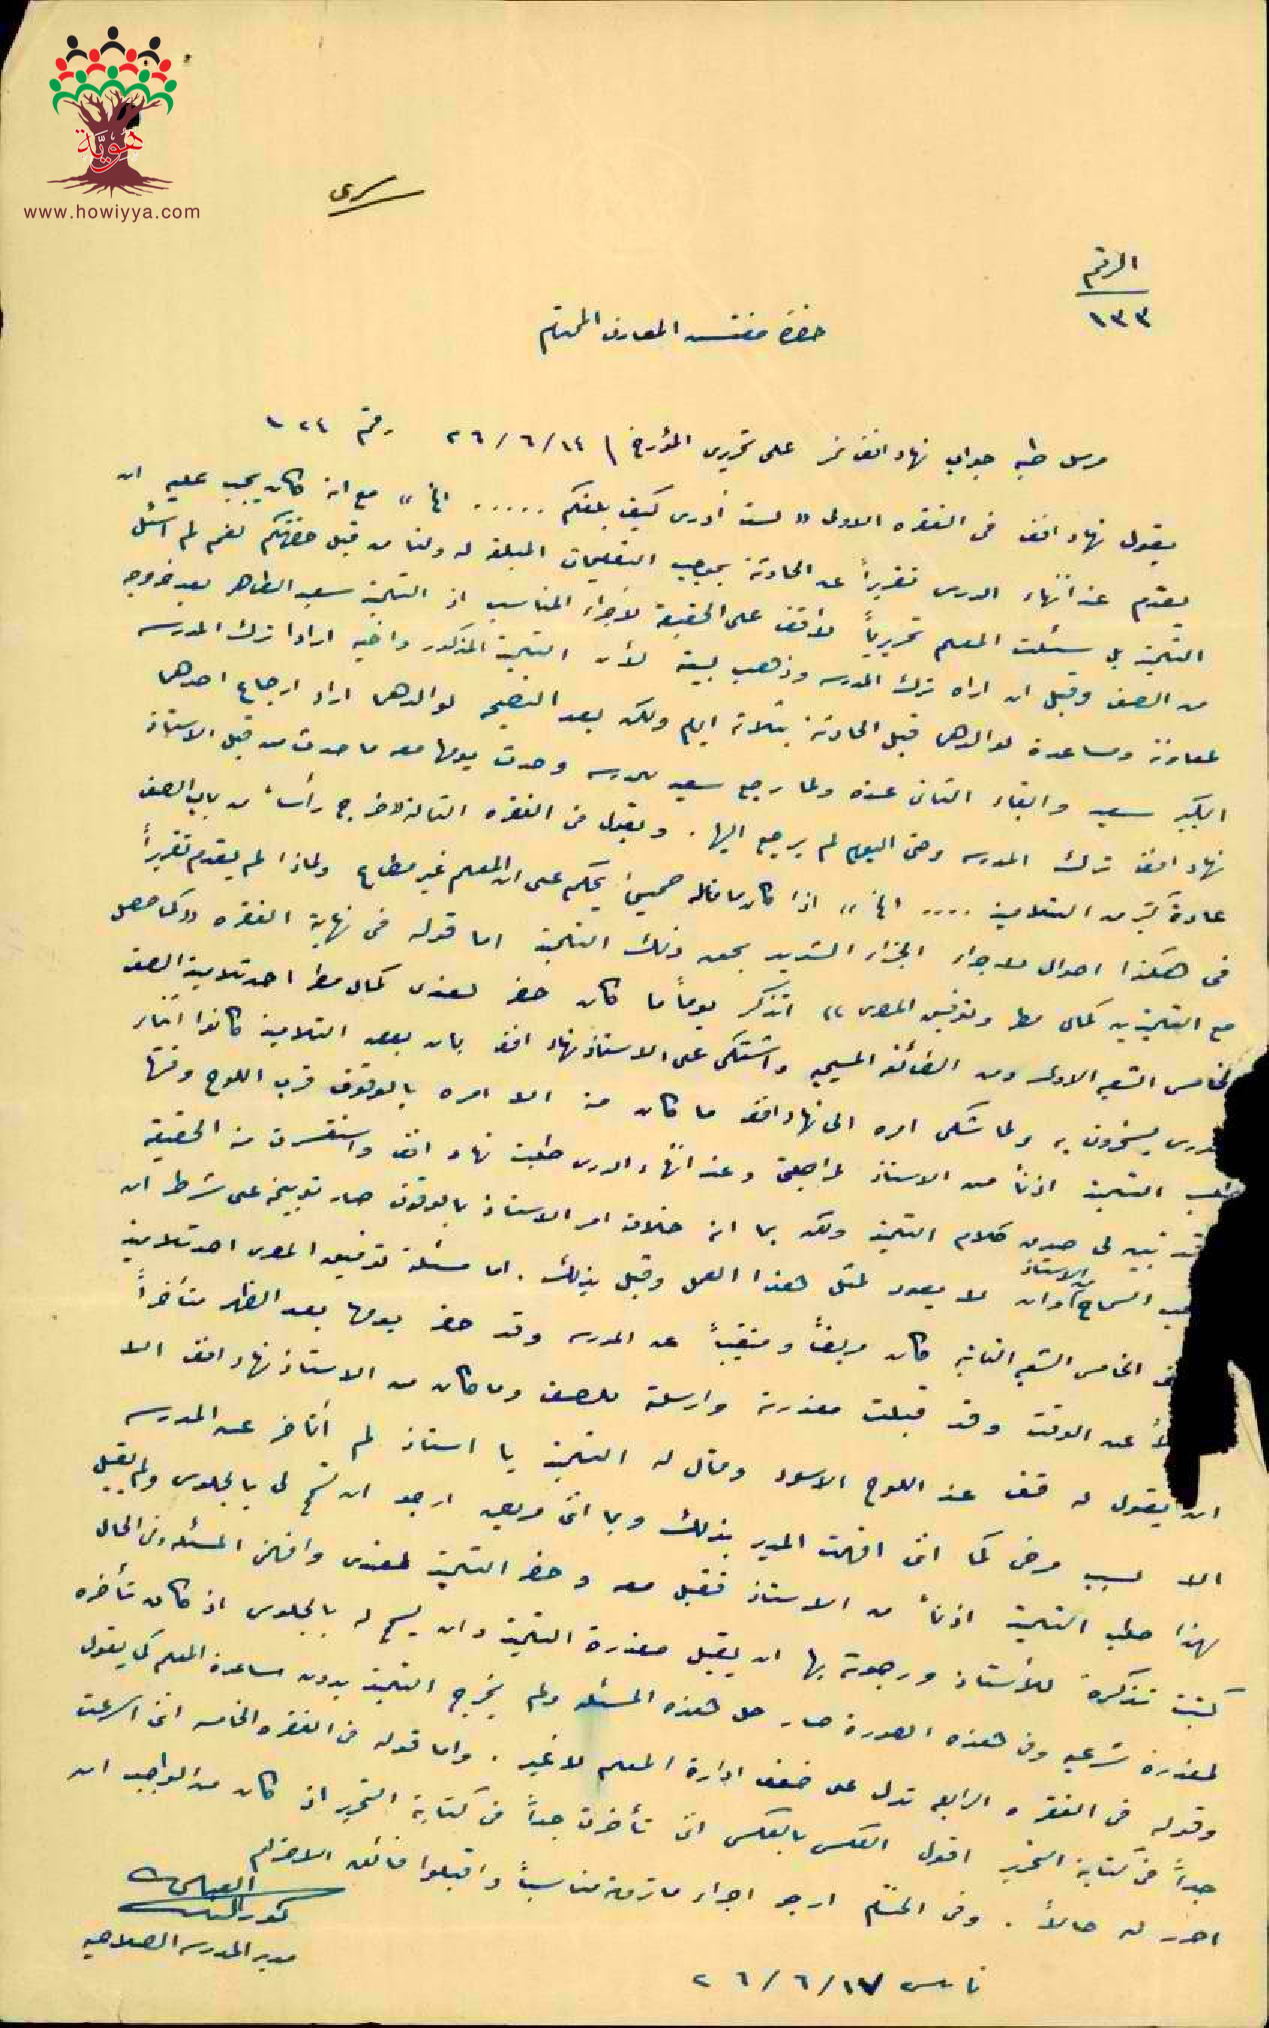 هَوِيَّة
www.howiyya.com
سري
الرقم
١٣٣
حضرة مفتش المعارف المحترم
مرسل طيه جواب نهاد افندي على تحريري المؤرخ ١٤/٦/٢٦ رقم ١٢٤
يقول نهاد افندي في الفقره الاولى «لست أدري كيف بلغكم ..... الخ» مع انه كان يجب عليه ان
يقدم عند انتهاء الدرس تقريراً عن الحادثة بموجب التعليمات المبلغة له ولنا من قبل حضرتكم نعم لم اسئل
التلميذ بل سئلت المعلم تحريرياً لاقف على الحقيقة لاجراء المناسب اذ التلميذ سعيد الطاهر بعد خروجه
من الصف وقبل ان اراه ترك المدرسه وذهب لبيته لأن التلميذ المذكور واخيه ارادا ترك المدرسه
لمعاونة ومساعدة لوالدهما قبل الحادثة بثلاثة ايام ولكن بعد النصيحه لوالدهما اراد ارجاع احدهما
الكبير سعيد وابقاء الثاني عنده ولما رجع سعيد للمدرسه وحدث يومها معه ما حدث من قبل الاستاذ
نهاد افندي ترك المدرسه وحتى اليوم لم يرجع اليها . ويقول في الفقره الثالثة «خرج رأساً من باب الصف
عادة كثير من التلاميذ .... الخ» اذا كان ما قاله صحيح يحكم على ان المعلم غير مطاع ولماذا لم يقدم تقريراً
في هكذا احوال لاجراء الجزاء الشديد بحق ذلك التلميذ اما قوله في نهاية الفقره «كما حصل
مع التلميذين كمال مطر وتوفيق المصري» اتذكر يوماً ما كان حضر لعندي كمال مطر احد تلاميذ الصف
الخامس الشعبه الاولى ومن الطائفه المسيحيه واشتكى على الاستاذ نهاد افندي بان بعض التلاميذ كانوا اثناء
الدرس يسخرون به ولما شكى امره الى نهاد افندي ما كان منه الا امره بالوقوف قرب اللوح وقتها
طلب التلميذ اذناً من الاستاذ لمراجعتي وعند انتهاء الدرس طلبت نهاد افندي واستفسرت منه الحقيقه
تبين لي صدق كلام التلميذ ولكن بما انه خلاف امر الاستاذ بالوقوف صار توبيخه على شرط ان
السماح من الاستاذ وان لا يعود لمثل هذا العمل وقبل بذلك . اما مسئلة توفيق المصري احد تلاميذ
الخامس الشعبه الثانيه كان مريضاً ومتغيباً عن المدرسه وقد حضر يومها بعد الظهر متأخراً
عن الوقت وقد قبلت معذرته وارسلته للصف وما كان من الاستاذ نهاد افندي الا
ان يقول له قف عند اللوح الاسود وقال له التلميذ يا استاذ لم أتأخر عن المدرسه
الا لسبب مرضي كما انني افهمت المدير بذلك وبما اني مريض ارجو ان تسمح لي بالجلوس ولم يقبل
بهذا طلب التلميذ اذناً من الاستاذ فقبل معه وحضر التلميذ لعندي وافهمني المسئله وفي الحال
كتبت تذكرة للأستاذ ورجوته بها ان يقبل معذرة التلميذ وان يسمح له بالجلوس اذ كان تأخره
لمعذرة شرعيه وفي هذه الصورة صار حل هذه المسئله ولم يخرج التلميذ بدون مساعدة المعلم كما يقول
وقوله في الفقره الرابعه تدل على ضعف ادارة المعلم لا غير . واما قوله في الفقره الخامسه انني اسرعت
جداً في كتابة التحرير اقول العكس بالعكس اني تأخرت جداً في كتابة التحرير اذ كان من الواجب ان
احرر له حالاً . وفي الختام ارجو اجراء ما ترونه مناسباً واقبلوا فائق الاحترام
مدير المدرسه الصلاحيه
نابلس ١٧/٦/٢٦